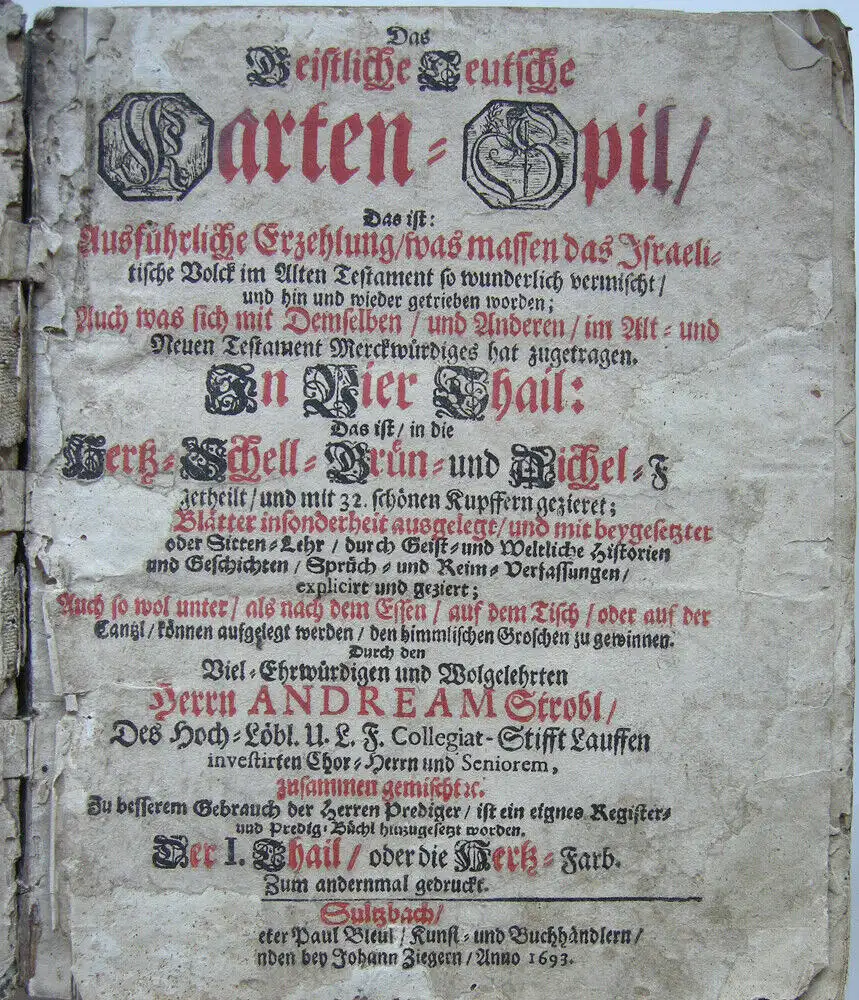 Das
Geistliche Teutsche
Karten-Spil/
Das ist:
Ausführliche Erzehlung/was massen das Israeli-
tische Volck im Alten Testament so wunderlich vermischt/
und hin und wieder getrieben worden;
Auch was sich mit Demselben/und Anderen/im Alt-und
Neuen Testament Merckwürdiges hat zugetragen.
In Vier Thail:
Das ist/in die
Hertz-Schell-Grün-und Aichel-F
getheilt/und mit 32. schönen Kupffern gezieret;
Blätter insonderheit ausgelegt/und mit beygesetzter
oder Sitten-Lehr/durch Geist-und Weltliche Historien
und Geschichten/Sprüch-und Reim-Verfassungen/
explicirt und geziert;
Auch so wol unter/als nach dem Essen/auf dem Tisch/oder auf der
Cantzl/können aufgelegt werden/den himmlischen Groschen zu gewinnen.
Durch den
Viel-Ehrwürdigen und Wolgelehrten
Herrn ANDREAM Strobl/
Des Hoch-Löbl. U. L. F. Collegiat-Stifft Lauffen
investirten Chor-Herrn und Seniorem,
zusammen gemischt ꝛc.
Zu besserem Gebrauch der Herren Prediger/ist ein eignes Register-
und Predig-Büchl hinzugesetzt worden.
Der I. Thail/oder die Hertz-Farb.
Zum andernmal gedruckt.
Sultzbach/
eter Paul Bleul/Kunst-und Buchhändlern/
nden bey Johann Ziegern/Anno 1693.